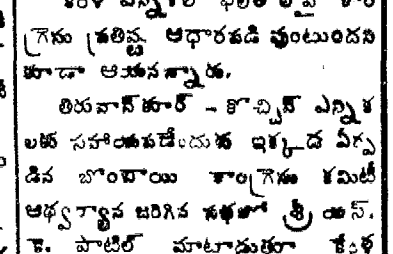 గ్రెసు ప్రతిష్ట ఆధారపడి వుంటుందని
కూడా ఆయనన్నారు.
తిరువాన్కూర్ - కొచ్చిన్ ఎన్నిక
లకు సహాయపడేందుకు ఇక్కడ ఏర్ప
డిన బొంబాయి కాంగ్రెసు కమిటీ
ఆధ్వర్యాన జరిగిన సభలో శ్రీ యస్.
కె. పాటిల్ మాటాడుతూ కేరళ